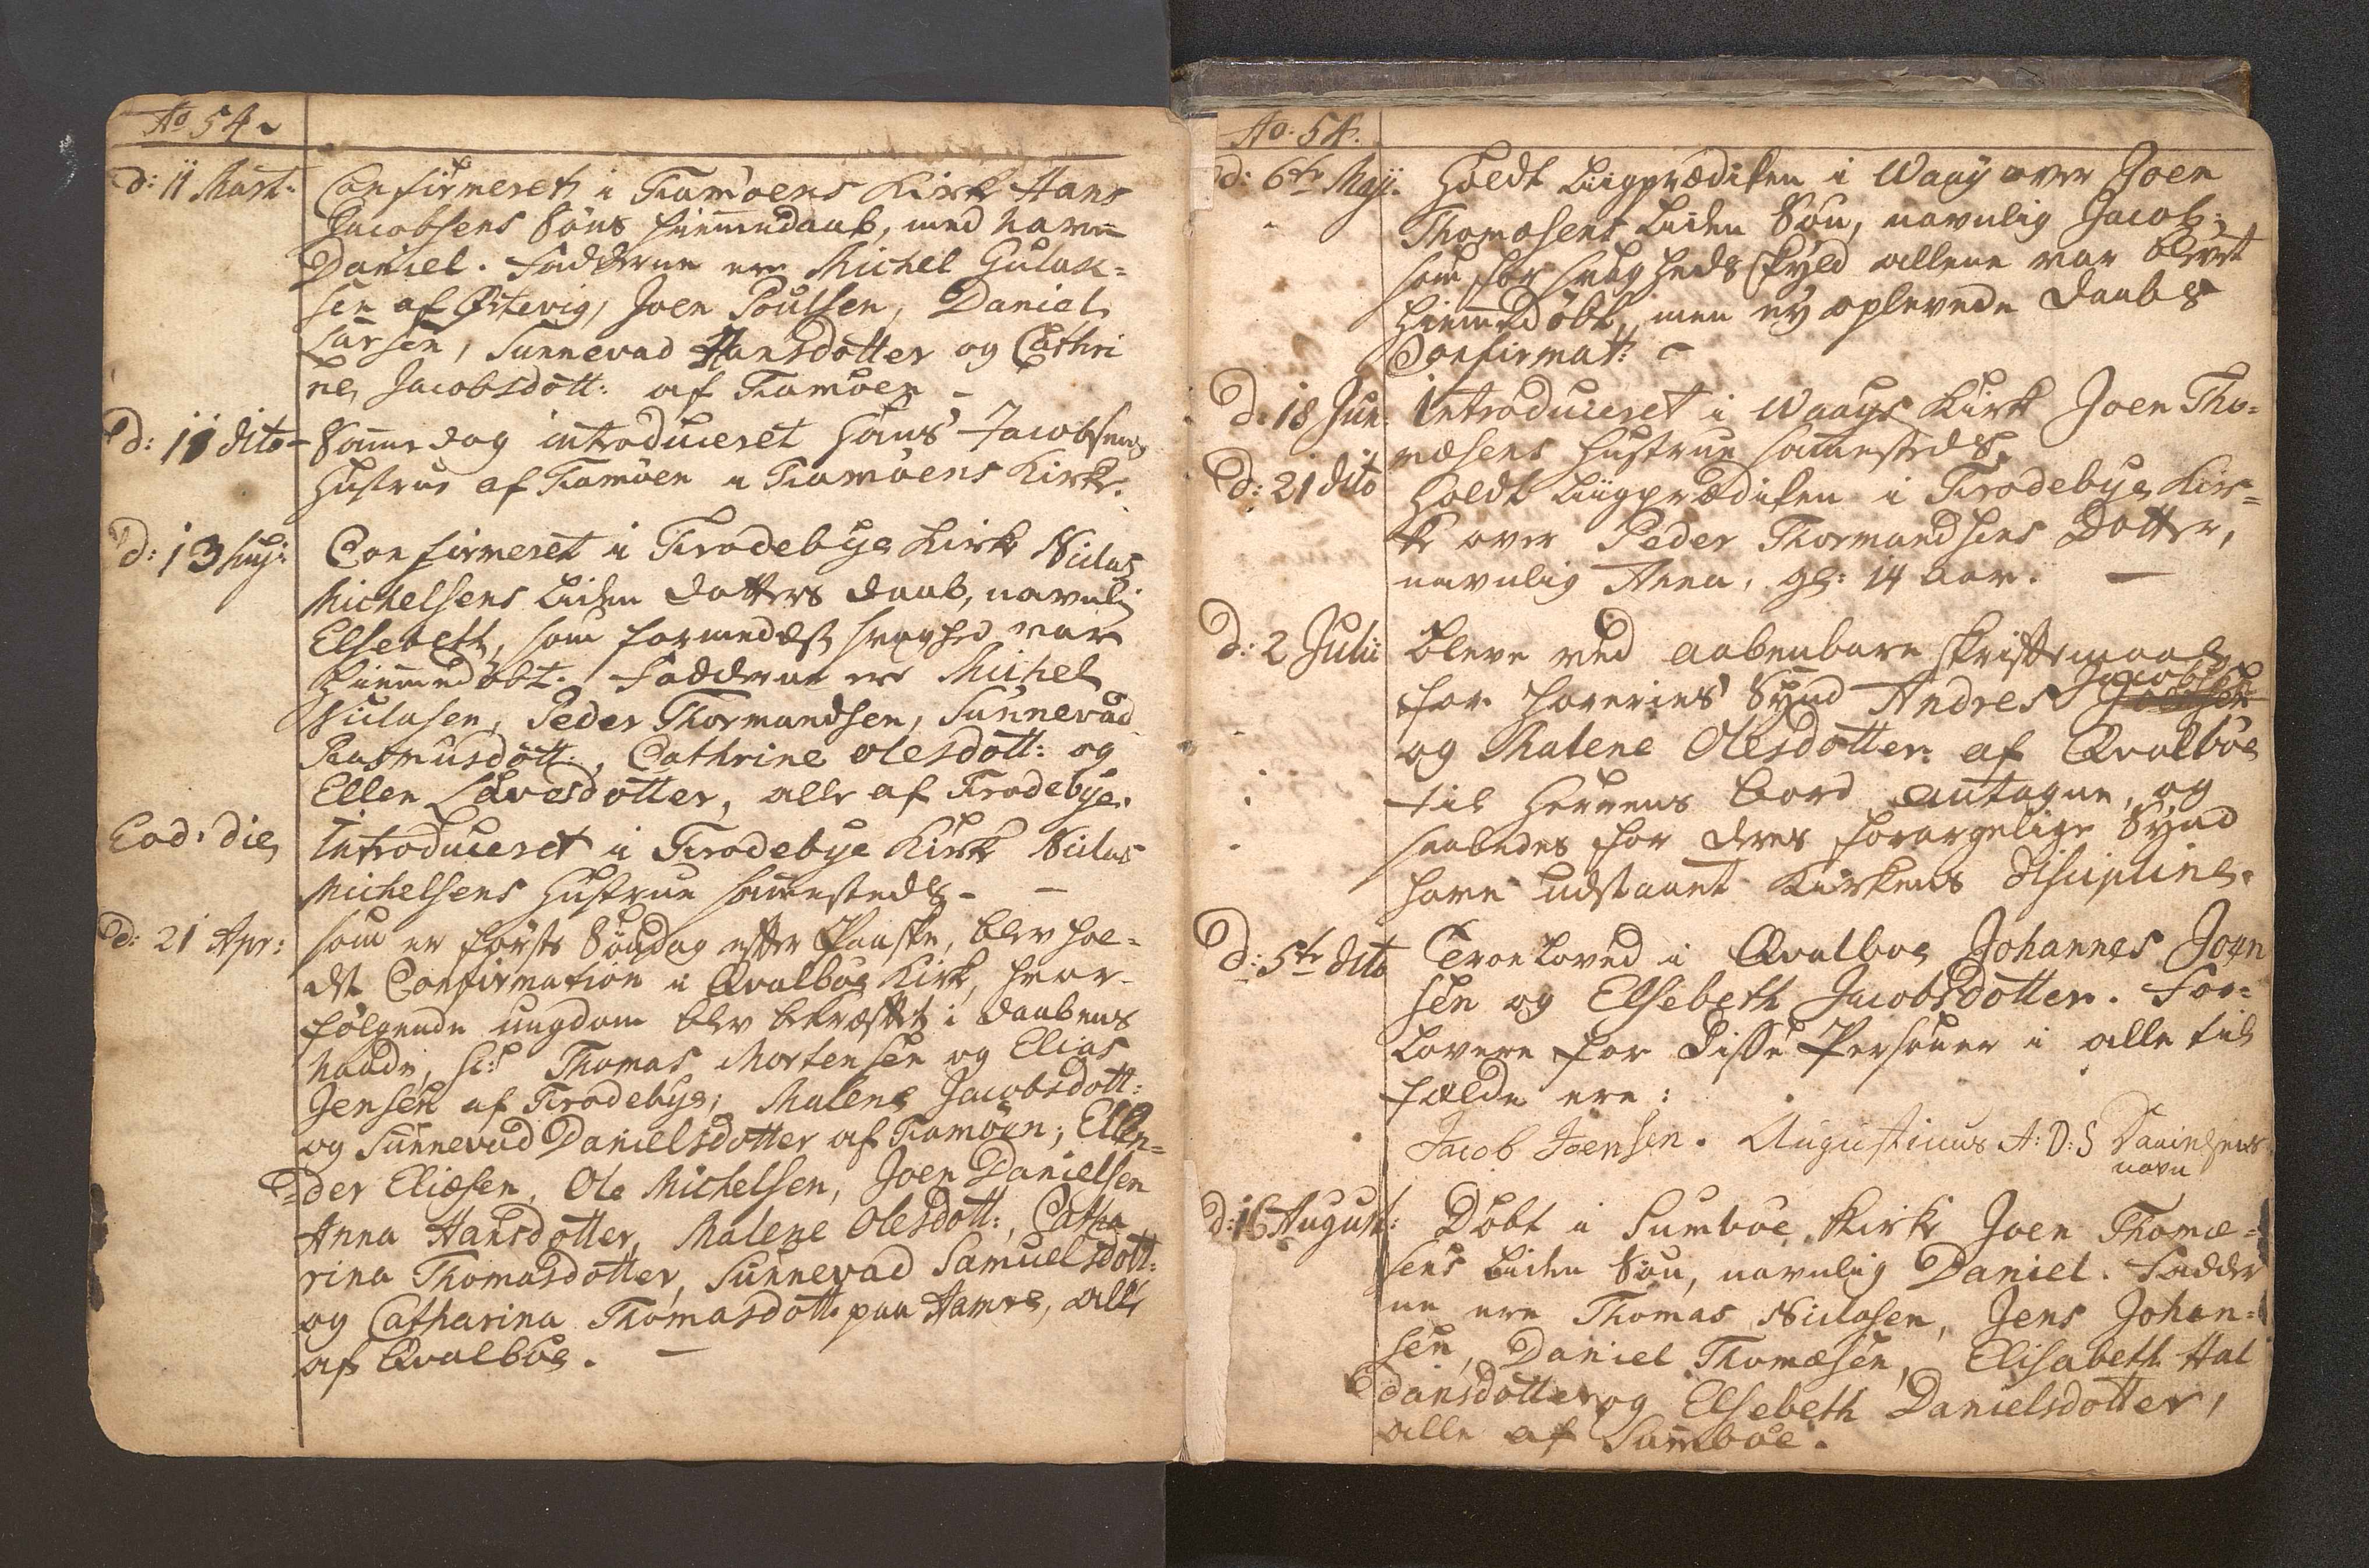 Ao 54
d: 11 Mart. Confirmeret i Famøens Kirke Hans
Jacobsens Søns hiemmedaab, med Navn
Daniel. Fadderne ere Michel Gulak-
sen af Østevig, Joen Poulsen, Daniel
Larsen, Sunnevad Hansdotter og Cathri
ne Jacobsdott: af Famøen -
d: 11 dito Samme dag introduceret Hans Jacobsens
Hustrue af Famøen i Famøens Kirke.
d: 13 huj: Confirmeret i Frodebye Kirke Niclas
Michelsens liden datters daab, navnlig
Elsebeth, som formedelst svaghed var
hiemmedøbt. Fadderne ere Michel
Niclasen, Peder Thormandsen, Sunnevad
Rasmusdott:, Cathrine Olesdott: og
Ellen Lavesdotter, alle af Frodebye.
Eod: die Introduceret i Frodebye Kirke Niclas
Michelsens Hustrue sammesteds -
d: 21 Apr: som er første Søndag efter Paaske, blev hol-
dt Confirmation i Qvalboe Kirke, hvor
følgende ungdom blev bekræftet i daabens
Naade, sc: Thomas Mortensen og Elias
Jensen af Frodebye; Malene Jacobsdott:
og Sunnevad Danielsdotter af Famøen; Ellen-
der Eliæsen, Ole Michelsen, Joen Danielsen
Anna Hansdotter, Malene Olesdott:, Catha
rina Thomasdotter, Sunnevad Samuelsdott:
og Catharina Thomasdott: paa Hamre, alle
af Qvalboe. -
Ao. 54.
d: 6te Maji. Holdt Liigprædiken i Waay over Joen
Thomæsens liden Søn, navnlig Jacob:
som for svagheds skyld allene var blevet
hiemmedøbt, men ey oplevede daabs
Confirmat: -
D: 18 Jun. Introduceret i Waays Kirke Joen Tho-
mæsens Hustrue sammesteds.
d: 21 dito Holdt Liigprædiken i Frodebye Kir-
ke over Peder Thormandsens Dotter,
navnlig Anna, gl: 14 aar. -
D: 2 Julii bleve ved aabenbare skriftemaal
for horeries Synd Andres Jacobsen
og Malene Olesdotter af Qvalboe
til Herrens bord antagne, og
saaledes for deres forargelige Synd
have udstaaet Kirkens Disciplin.
D: 5te dito Troeloved i Qvalboe Johannes Joen
sen og Elsebeth Jacobsdotter. For-
lovere for disse Personer i alle til
fælde ere:
Jacob Joensen. Augustinus A: D: S Danielsens
navn
d: 16 August: Døbt i Sumboe Kirke Joen Thomæ-
sens liden Søn, navnlig Daniel. Fadder
ne ere Thomas Niclasen, Jens Johan-
sen, Daniel Thomæsen, Elisabeth Hal
dansdotter og Elsebeth Danielsdotter,
alle af Sumboe.